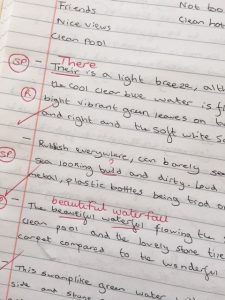 Friends
Nice views
Clean Pool
Not too
Clean hot
There
SP - Their is a light breeze, alth
the cool clean blue water is fl
R bight vibrant green leaves on t
and right and the soft white S
- Rubbish everywhere, can barely see
SP sea looking and dirty. Lou
metal, plastic bottles being trod o
beautiful waterfall
- The beautiful waterful flowing the
clean pool and the lovely stone tile
carpet compared to the wonderful
- This swamplike green water
side and